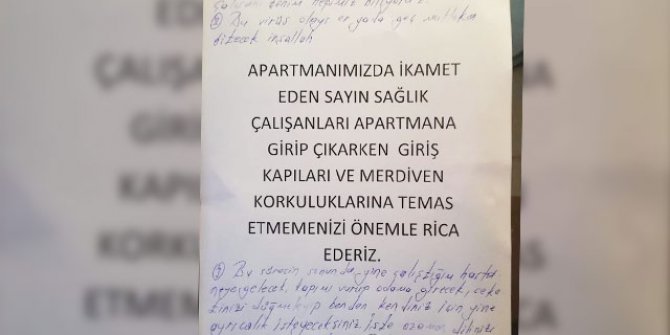 ② Bu virüs olayı er yada geç mutlaka
bitecek inşallah
APARTMANIMIZDA İKAMET
EDEN SAYIN SAĞLIK
ÇALIŞANLARI APARTMANA
GİRİP ÇIKARKEN GİRİŞ
KAPILARI VE MERDİVEN
KORKULUKLARINA TEMAS
ETMEMENİZİ ÖNEMLE RİCA
EDERİZ.
Bu sürecin sonunda yine çalıştığım
kapımı vurup odama girecek, ceke
tinizi benden kendiniz için yine
ayrıcalık isteyeceksiniz İşte o zaman